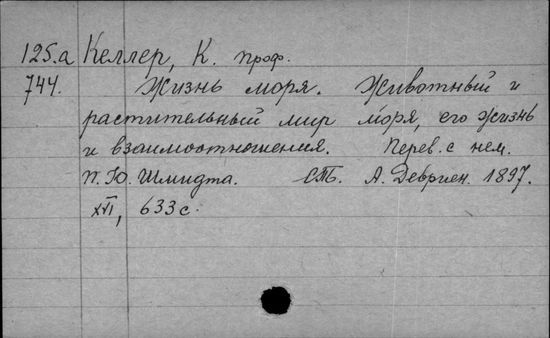 125.a Келлер, К. проф.
744. Жизнь моря. Животный и
растительный мир моря, его жизнь
и взаимоотношения. Перев. с нем.
П. Ю. Шмидта. СПб. А. Девриен. 1897.
XVI, 633 с.